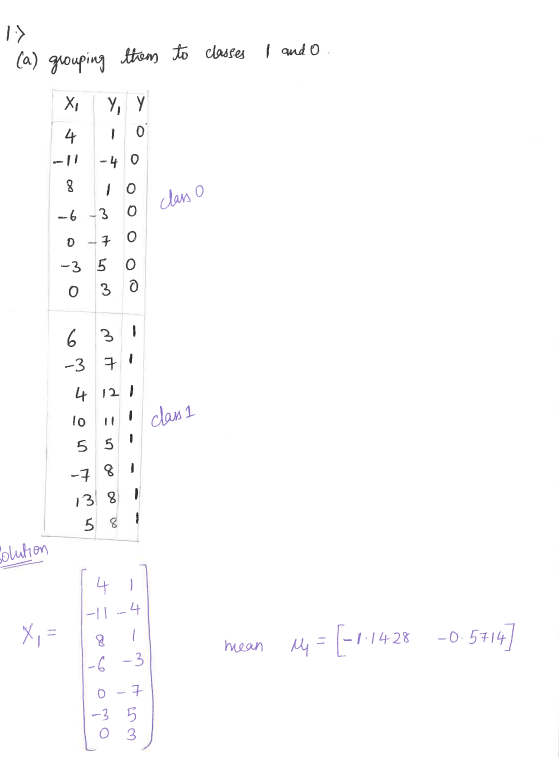 1>
(a) grouping them to classes 1 and 0.
X₁ Y₁ Y
4 1 0
-11 -4 0
8 1 0
-6 -3 0
0 -7 0
-3 5 0
0 3 0
class 0
6 3 1
-3 7 1
4 12 1
10 11 1
5 5 1
-7 8 1
13 8 1
5 8 1
class 1
Solution
X₁ =
4 1
-11 -4
8 1
-6 -3
0 -7
-3 5
0 3
mean μ₁ = [-1.1428 -0.5714]